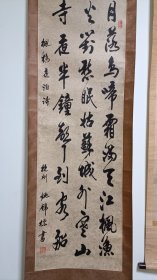 月落烏啼霜滿天江楓漁
火對愁眠姑蘇城外寒山
寺夜半鐘聲到客船
楓橋夜泊詩